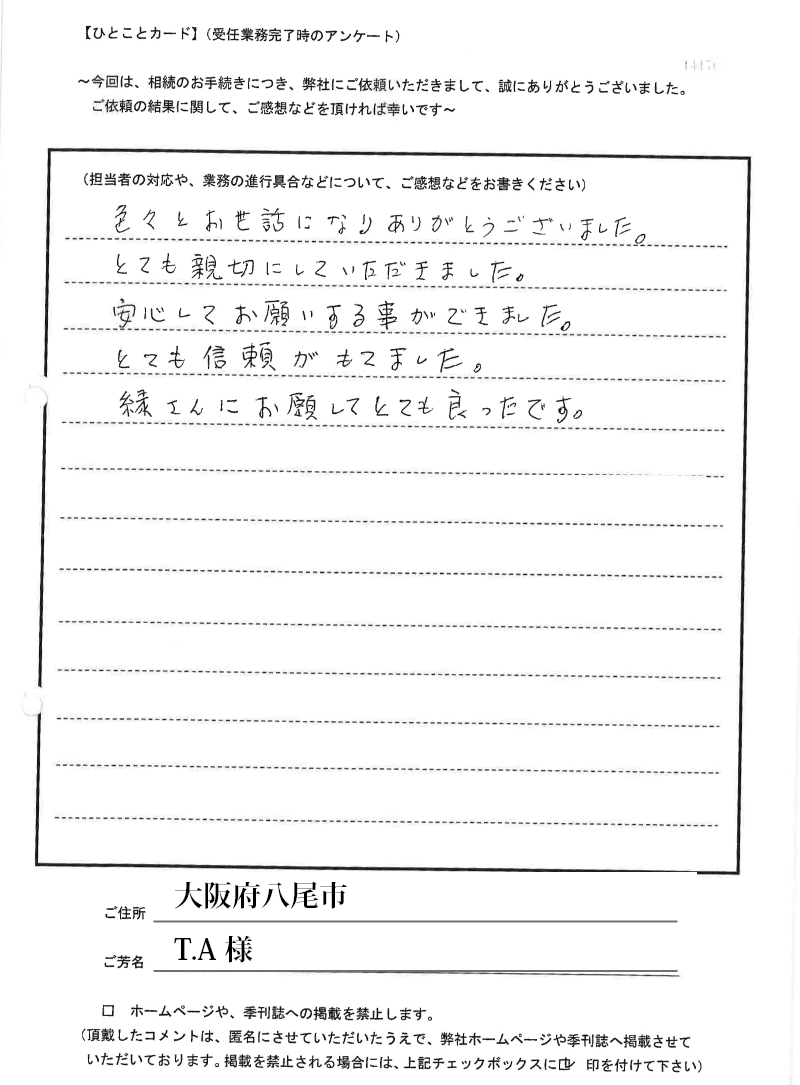 【ひとことカード】（受任業務完了時のアンケート）
～今回は、相続のお手続きにつき、弊社にご依頼いただきまして、誠にありがとうございました。
ご依頼の結果に関して、ご感想などを頂ければ幸いです～
（担当者の対応や、業務の進行具合などについて、ご感想などをお書きください）
色々とお世話になりありがとうございました。
とても親切にしていただきました。
安心してお願いする事ができました。
とても信頼がもてました。
縁さんにお願してとても良ったです。
ご住所 大阪府八尾市
ご芳名 T.A 様
□ ホームページや、季刊誌への掲載を禁止します。
（頂戴したコメントは、匿名にさせていただいたうえで、弊社ホームページや季刊誌へ掲載させて
いただいております。掲載を禁止される場合には、上記チェックボックスに☑ 印を付けて下さい）